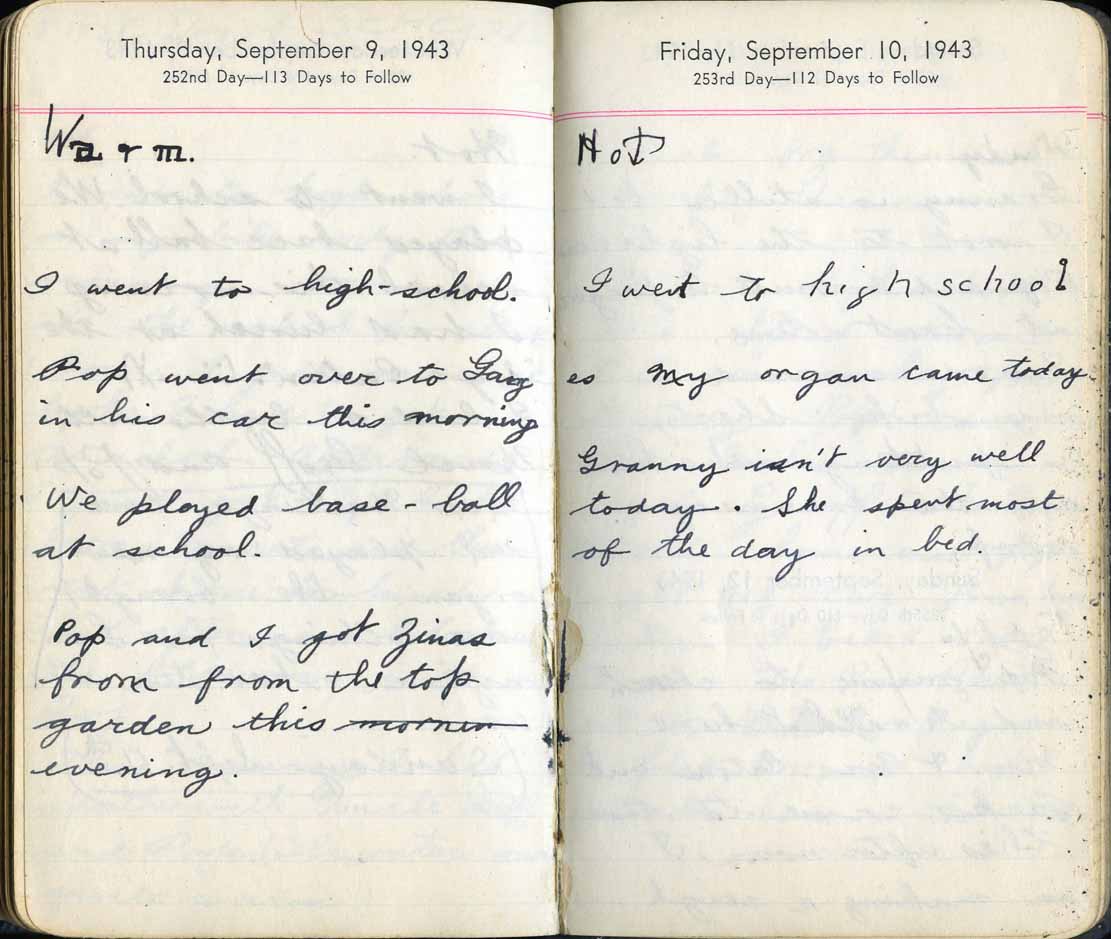 Thursday, September 9, 1943
252nd Day—113 Days to Follow
Warm.
I went to high-school.
Pop went over to Gay
in his car this morning
We played base-ball
at school.
Pop and I got Zinas
from from the top
garden this mornin
evening.
Friday, September 10, 1943
253rd Day—112 Days to Follow
Hot
I went to high school
es my organ came today.
Granny isn't very well
today. She spent most
of the day in bed.